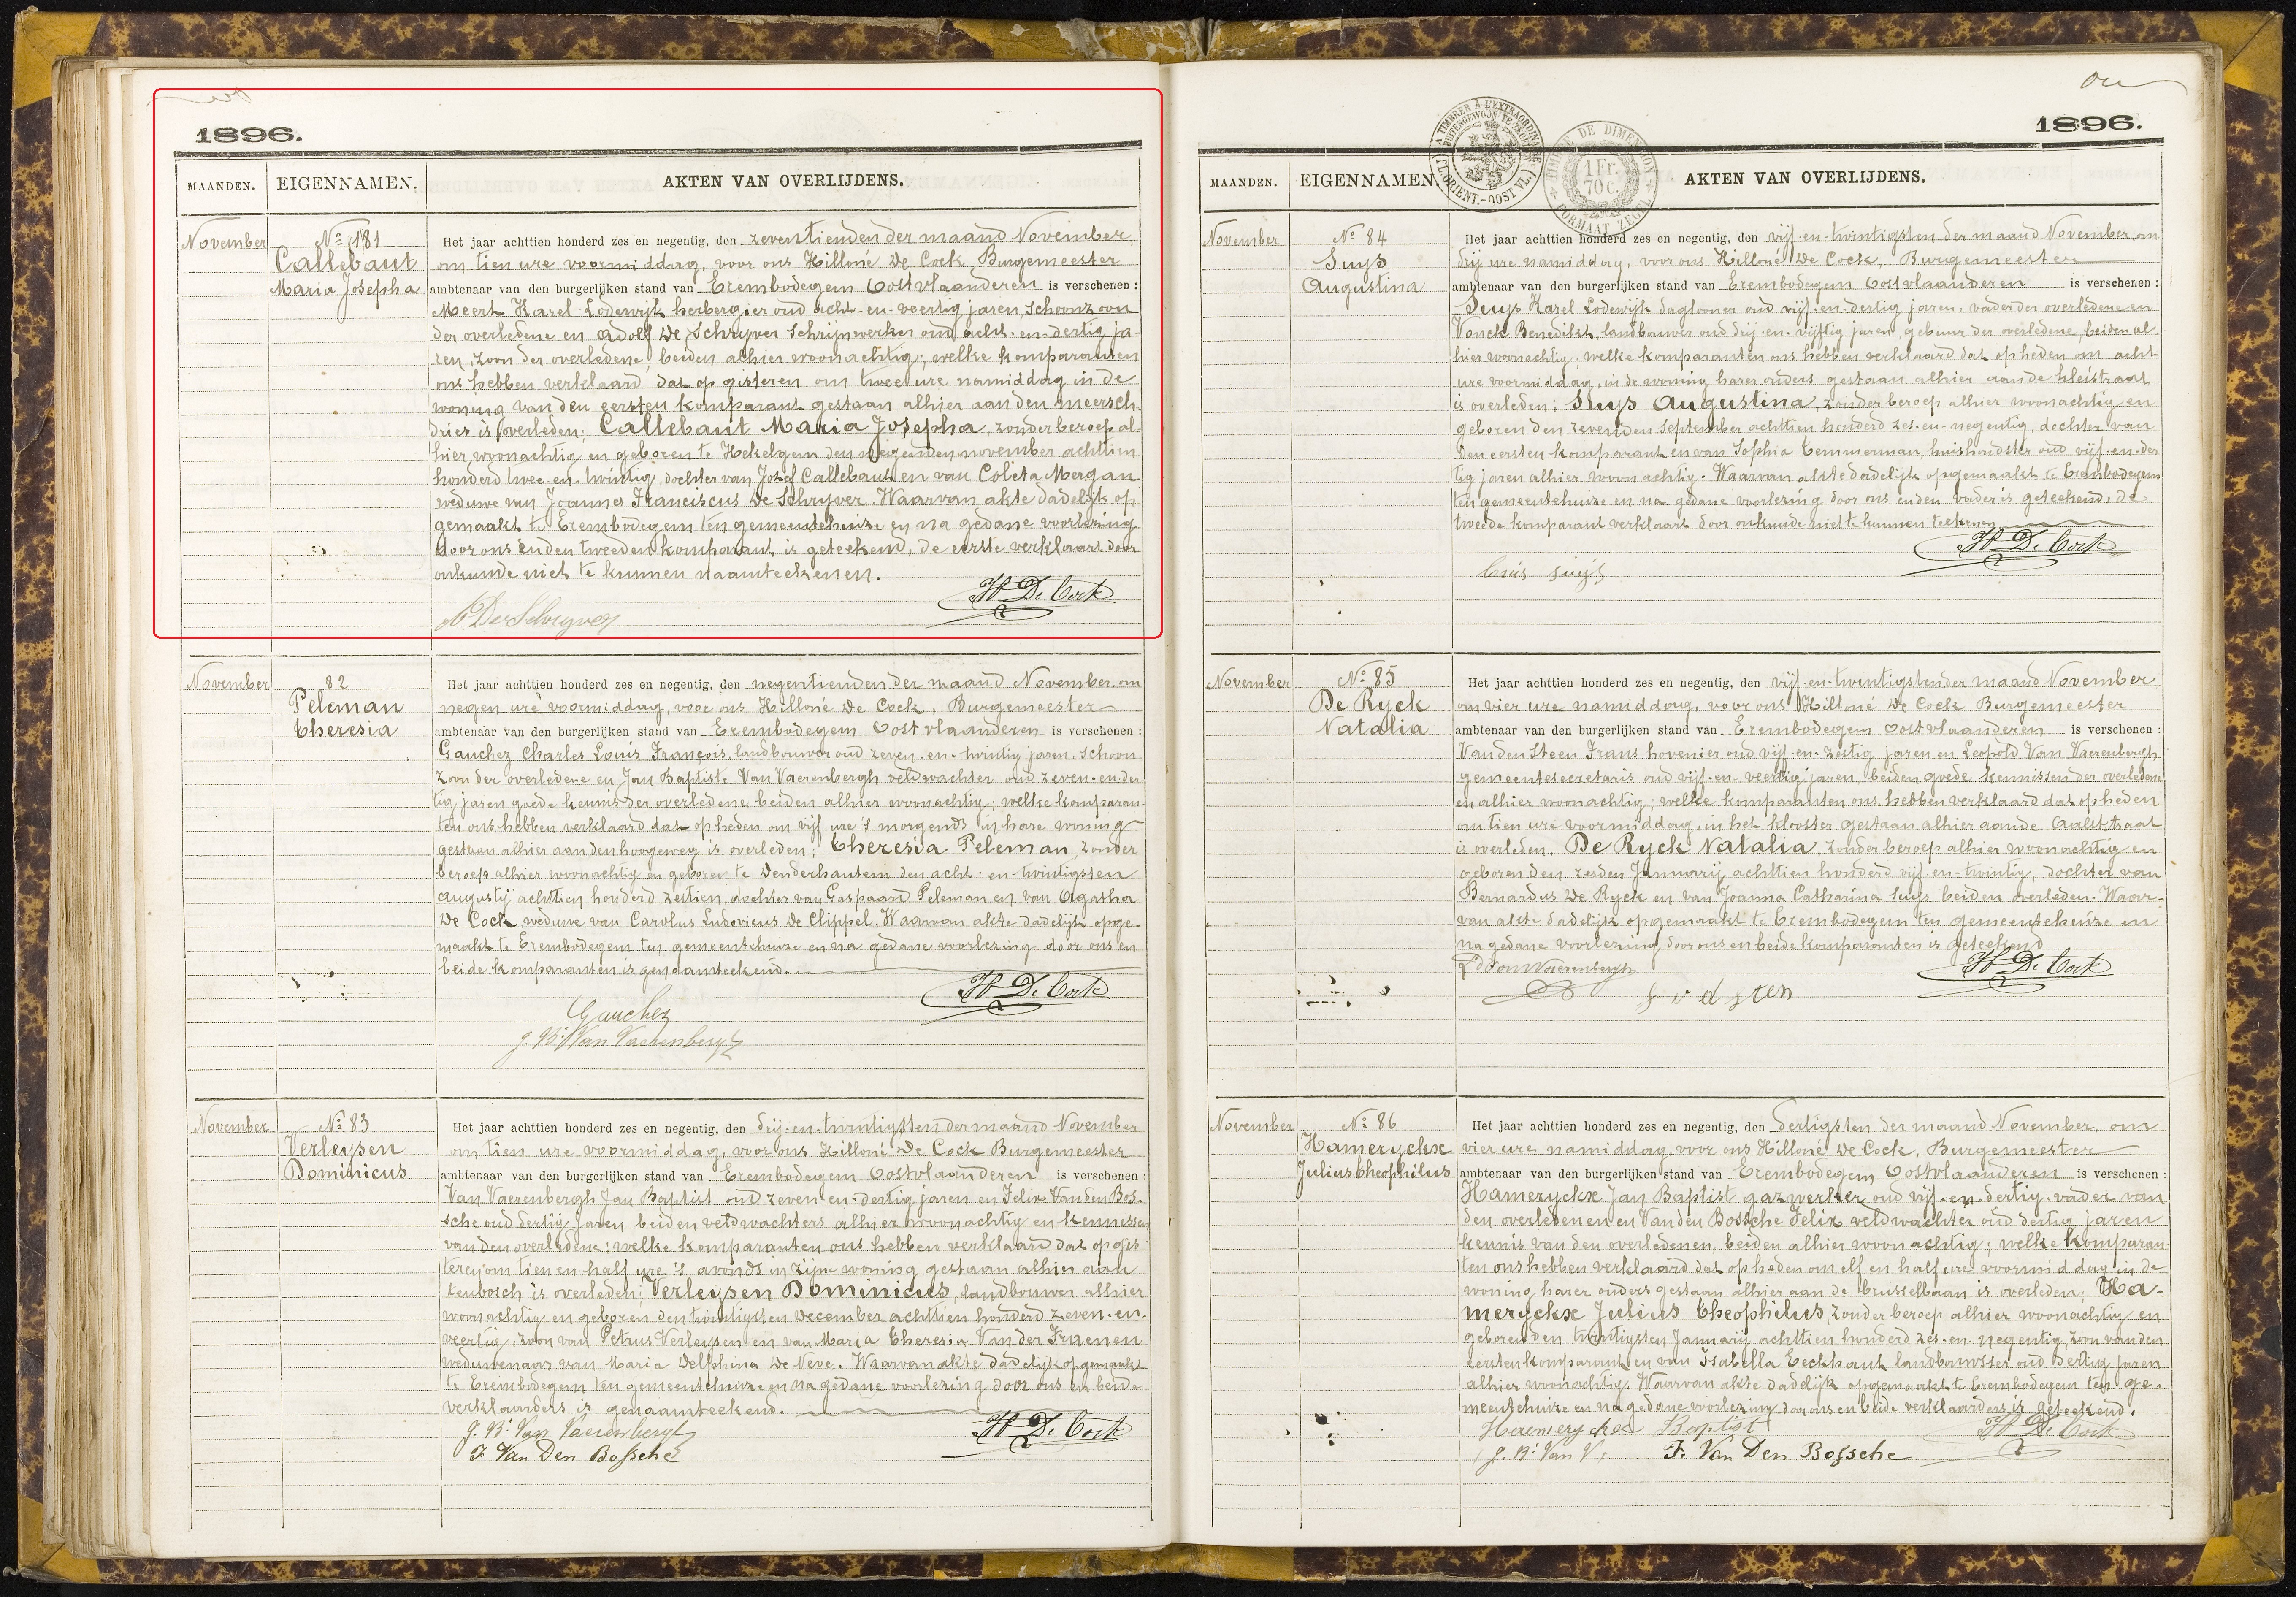 1896.
MAANDEN. EIGENNAMEN. AKTEN VAN OVERLIJDENS.
November
Nº 181
Callebaut
Maria Josepha
Het jaar achttien honderd zes en negentig, den zeventienden der maand November
om tien ure voormiddag, voor ons Hilloné De Cock Burgemeester
ambtenaar van den burgerlijken stand van Erembodegem Oostvlaanderen is verschenen :
Meert Karel Lodewijk herbergier oud acht-en-veertig jaren, schoonzoon
der overledene en Adolf De Schryver Schrijnwerker oud acht-en-dertig ja-
ren, zoon der overledene, beiden alhier woonachtig; welke komparanten
ons hebben verklaard dat op gisteren om twee ure namiddag in de
woning van den eersten komparant gestaan alhier aan den meersch
dries is overleden; Callebaut Maria Josepha, zonder beroep al-
hier woonachtig en geboren te Hekelgem den negenden november achttien
honderd twee-en-twintig, dochter van Josef Callebaut en van Coleta Mergan
weduwe van Joannes Franciscus De Schryver. Waarvan akte dadelijk op
gemaakt te Erembodegem ten gemeentehuize en na gedane voorlezing
door ons en den tweeden komparant is geteekend, de eerste verklaart door
onkunde niet te kunnen naamteekenen.
H De Cock
A De Schryver
November
82
Peleman
Theresia
Het jaar achttien honderd zes en negentig, den negentienden der maand November om
negen ure voormiddag, voor ons Hilloné De Cock, Burgemeester
ambtenaar van den burgerlijken stand van Erembodegem Oostvlaanderen is verschenen :
Gauchez Charles Louis François, landbouwer oud zeven-en-twintig jaren, schoon
zoon der overledene en Jan Baptiste Van Vaerenbergh veldwachter oud zeven-en-der
tig jaren goede kennis der overledene beiden alhier woonachtig; welke komparan-
ten ons hebben verklaard dat op heden om vijf ure 's morgends in hare woning
gestaan alhier aan den hoogeweg is overleden; Theresia Peleman, zonder
beroep alhier woonachtig en geboren te Denderhautem den acht-en-twintigsten
augustij achttien honderd zestien, dochter van Gaspaard Peleman en van Agatha
De Cock, weduwe van Carolus Ludovicus De Clippel. Waarvan akte dadelijk opge-
maakt te Erembodegem ten gemeentehuize en na gedane voorlezing door ons en
beide komparanten is genaamteekend.
H De Cock
Gauchez
J. Bt Van Vaerenbergh
November
Nº 83
Verleysen
Dominicus
Het jaar achttien honderd zes en negentig, den drij-en-twintigsten der maand November
om tien ure voormiddag, voor ons Hilloné De Cock Burgemeester
ambtenaar van den burgerlijken stand van Erembodegem Oostvlaanderen is verschenen :
Van Vaerenbergh Jan Baptist oud zeven-en-dertig jaren en Felix Van den Bos-
sche oud dertig jaren beiden veldwachters alhier woonachtig en kennissen
van den overledene; welke komparanten ons hebben verklaard dat op gis-
teren om tien en half ure 's avonds in zijne woning gestaan alhier aan
tenbosch is overleden; Verleysen Dominicus, landbouwer alhier
woonachtig en geboren den twintigsten December achttien honderd zeven-en-
veertig, zoon van Petrus Verleysen en van Maria Theresia Van der Fraenen
weduwenaar van Maria Delphina De Neve. Waarvan akte dadelijk opgemaakt
te Erembodegem ten gemeentehuize en na gedane voorlezing door ons en beide
verklaarders is genaamteekend.
J. Bt Van Vaerenbergh H De Cock
F. Van Den Bossche
1896.
A TIMBRER À L'EXTRAORDINAIRE
1 Fr. 70 c.
FORMAAT ZEGEL
MAANDEN. EIGENNAMEN. AKTEN VAN OVERLIJDENS.
November
Nº 84
Suys
Augustina
Het jaar achttien honderd zes en negentig, den vijf-en-twintigsten der maand November, om
drij ure namiddag, voor ons Hilloné De Cock, Burgemeester
ambtenaar van den burgerlijken stand van Erembodegem Oostvlaanderen is verschenen :
Suys Karel Lodewijk daglooner oud vijf-en-dertig jaren, vader der overledene en
Vonck Benedikt, landbouwer oud drij-en-vijftig jaren, gebuur der overledene, beiden al-
hier woonachtig; welke komparanten ons hebben verklaard dat op heden om acht
ure voormiddag, in de woning harer ouders gestaan alhier aan de kleistraat
is overleden; Suys Augustina, zonder beroep alhier woonachtig en
geboren den zevenden September achttien honderd zes-en-negentig, dochter van
den eersten komparant en van Sophia Temmerman, huishoudster oud vijf-en-der
tig jaren alhier woonachtig. Waarvan akte dadelijk opgemaakt te Erembodegem
ten gemeentehuize en na gedane voorlezing door ons en den vader is geteekend, de
tweede komparant verklaart door onkunde niet te kunnen teekenen
H De Cock
Suijs
November
Nº 85
De Ryck
Natalia
Het jaar achttien honderd zes en negentig, den vijf-en-twentigsten der maand November
om vier ure namiddag, voor ons Hilloné De Cock Burgemeester
ambtenaar van den burgerlijken stand van Erembodegem Oostvlaanderen is verschenen :
Van den Steen Frans hovenier oud vijf-en-zestig jaren en Leopold Van Vaerenbergh
gemeentesecretaris oud vijf-en-veertig jaren, beiden goede kennissen der overledene
en alhier woonachtig; welke komparanten ons hebben verklaard dat op heden
om tien ure voormiddag, in het klooster gestaan alhier aan de Aalststraat
is overleden, De Ryck Natalia, zonder beroep alhier woonachtig en
geboren den zesden Januarij achttien honderd vijf-en-twintig, dochter van
Bernardus De Ryck en van Joanna Catharina Suys beiden overleden. Waar-
van akte dadelijk opgemaakt te Erembodegem ten gemeentehuize en
na gedane voorlezing door ons en beide komparanten is geteekend
Ld Van Vaerenbergh H De Cock
November
Nº 86
Hameryckx
Julius Theophilus
Het jaar achttien honderd zes en negentig, den dertigsten der maand November, om
vier ure namiddag voor ons Hilloné De Cock, Burgemeester
ambtenaar van den burgerlijken stand van Erembodegem Oostvlaanderen is verschenen :
Hameryckx Jan Baptist gazwerker oud vijf-en-dertig vader van
den overledenen en Van den Bossche Felix veldwachter oud dertig jaren
kennis van den overledenen, beiden alhier woonachtig; welke komparan-
ten ons hebben verklaard dat op heden om elf en half ure voormiddag in de
woning harer ouders gestaan alhier aan de brusselbaan is overleden; Ha-
meryckx Julius Theophilus, zonder beroep alhier woonachtig en
geboren den twintigsten Januarij achttien honderd zes-en-negentig, zoon van den
eersten komparant en van Isabella Eeckhout landbouwster oud dertig jaren
alhier woonachtig. Waarvan akte dadelijk opgemaakt te Erembodegem ten ge-
meentehuize en na gedane voorlezing door ons en beide verklaarders is geteekend.
Hameryckx Baptist H De Cock
J. Bt Van V. F. Van Den Bossche